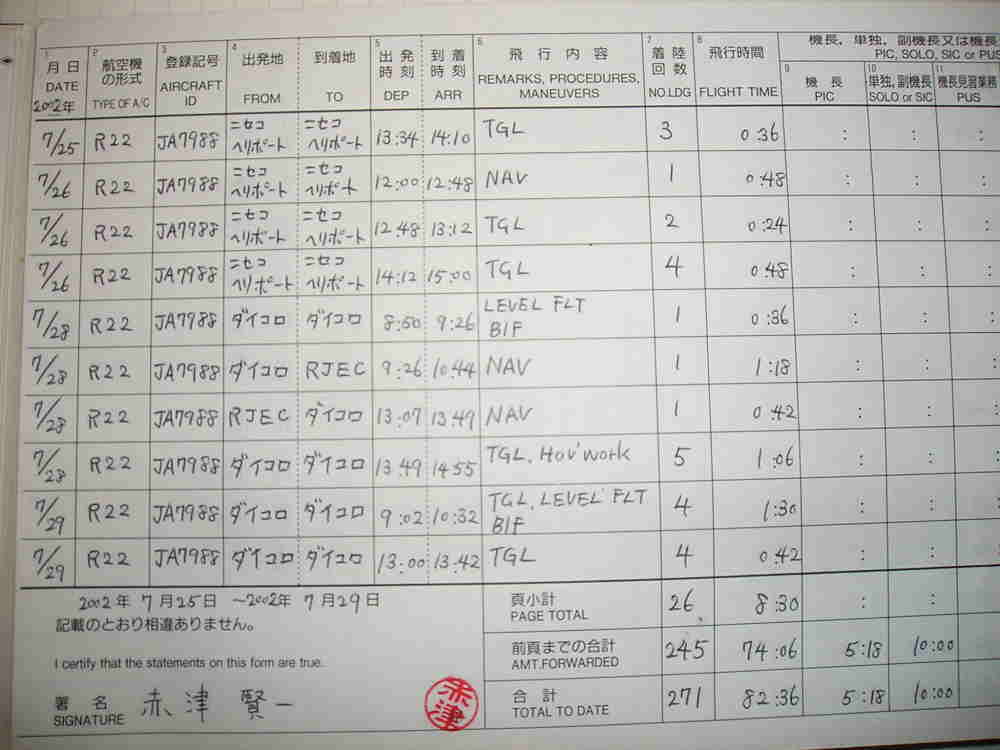 機長, 単独, 副機長又は機長
PIC, SOLO, SIC or PUS
1 月日 DATE 2002年 2 航空機の形式 TYPE OF A/C 3 登録記号 AIRCRAFT ID 4 出発地 FROM 到着地 TO 5 出発時刻 DEP 到着時刻 ARR 6 飛行内容 REMARKS, PROCEDURES, MANEUVERS 7 着陸回数 NO.LDG 8 飛行時間 FLIGHT TIME 9 機長 PIC 10 単独, 副機長 SOLO or SIC 11 機長見習業務 PUS
7/25 R22 JA7988 ニセコヘリポート ニセコヘリポート 13:34 14:10 TGL 3 0:36 : : :
7/26 R22 JA7988 ニセコヘリポート ニセコヘリポート 12:00 12:48 NAV 1 0:48 : : :
7/26 R22 JA7988 ニセコヘリポート ニセコヘリポート 12:48 13:12 TGL 2 0:24 : : :
7/26 R22 JA7988 ニセコヘリポート ニセコヘリポート 14:12 15:00 TGL 4 0:48 : : :
7/28 R22 JA7988 ダイコロ ダイコロ 8:50 9:26 LEVEL FLT BIF 1 0:36 : : :
7/28 R22 JA7988 ダイコロ RJEC 9:26 10:44 NAV 1 1:18 : : :
7/28 R22 JA7988 RJEC ダイコロ 13:07 13:49 NAV 1 0:42 : : :
7/28 R22 JA7988 ダイコロ ダイコロ 13:49 14:55 TGL, HOV'work 5 1:06 : : :
7/29 R22 JA7988 ダイコロ ダイコロ 9:02 10:32 TGL, LEVEL FLT BIF 4 1:30 : : :
7/29 R22 JA7988 ダイコロ ダイコロ 13:00 13:42 TGL 4 0:42 : : :
2002年 7月25日 〜2002年 7月29日
記載のとおり相違ありません。
I certify that the statements on this form are true.
署名 SIGNATURE 赤津 賢一
赤津
頁小計 PAGE TOTAL 26 8:30 : :
前頁までの合計 AMT.FORWARDED 245 74:06 5:18 10:00
合計 TOTAL TO DATE 271 82:36 5:18 10:00